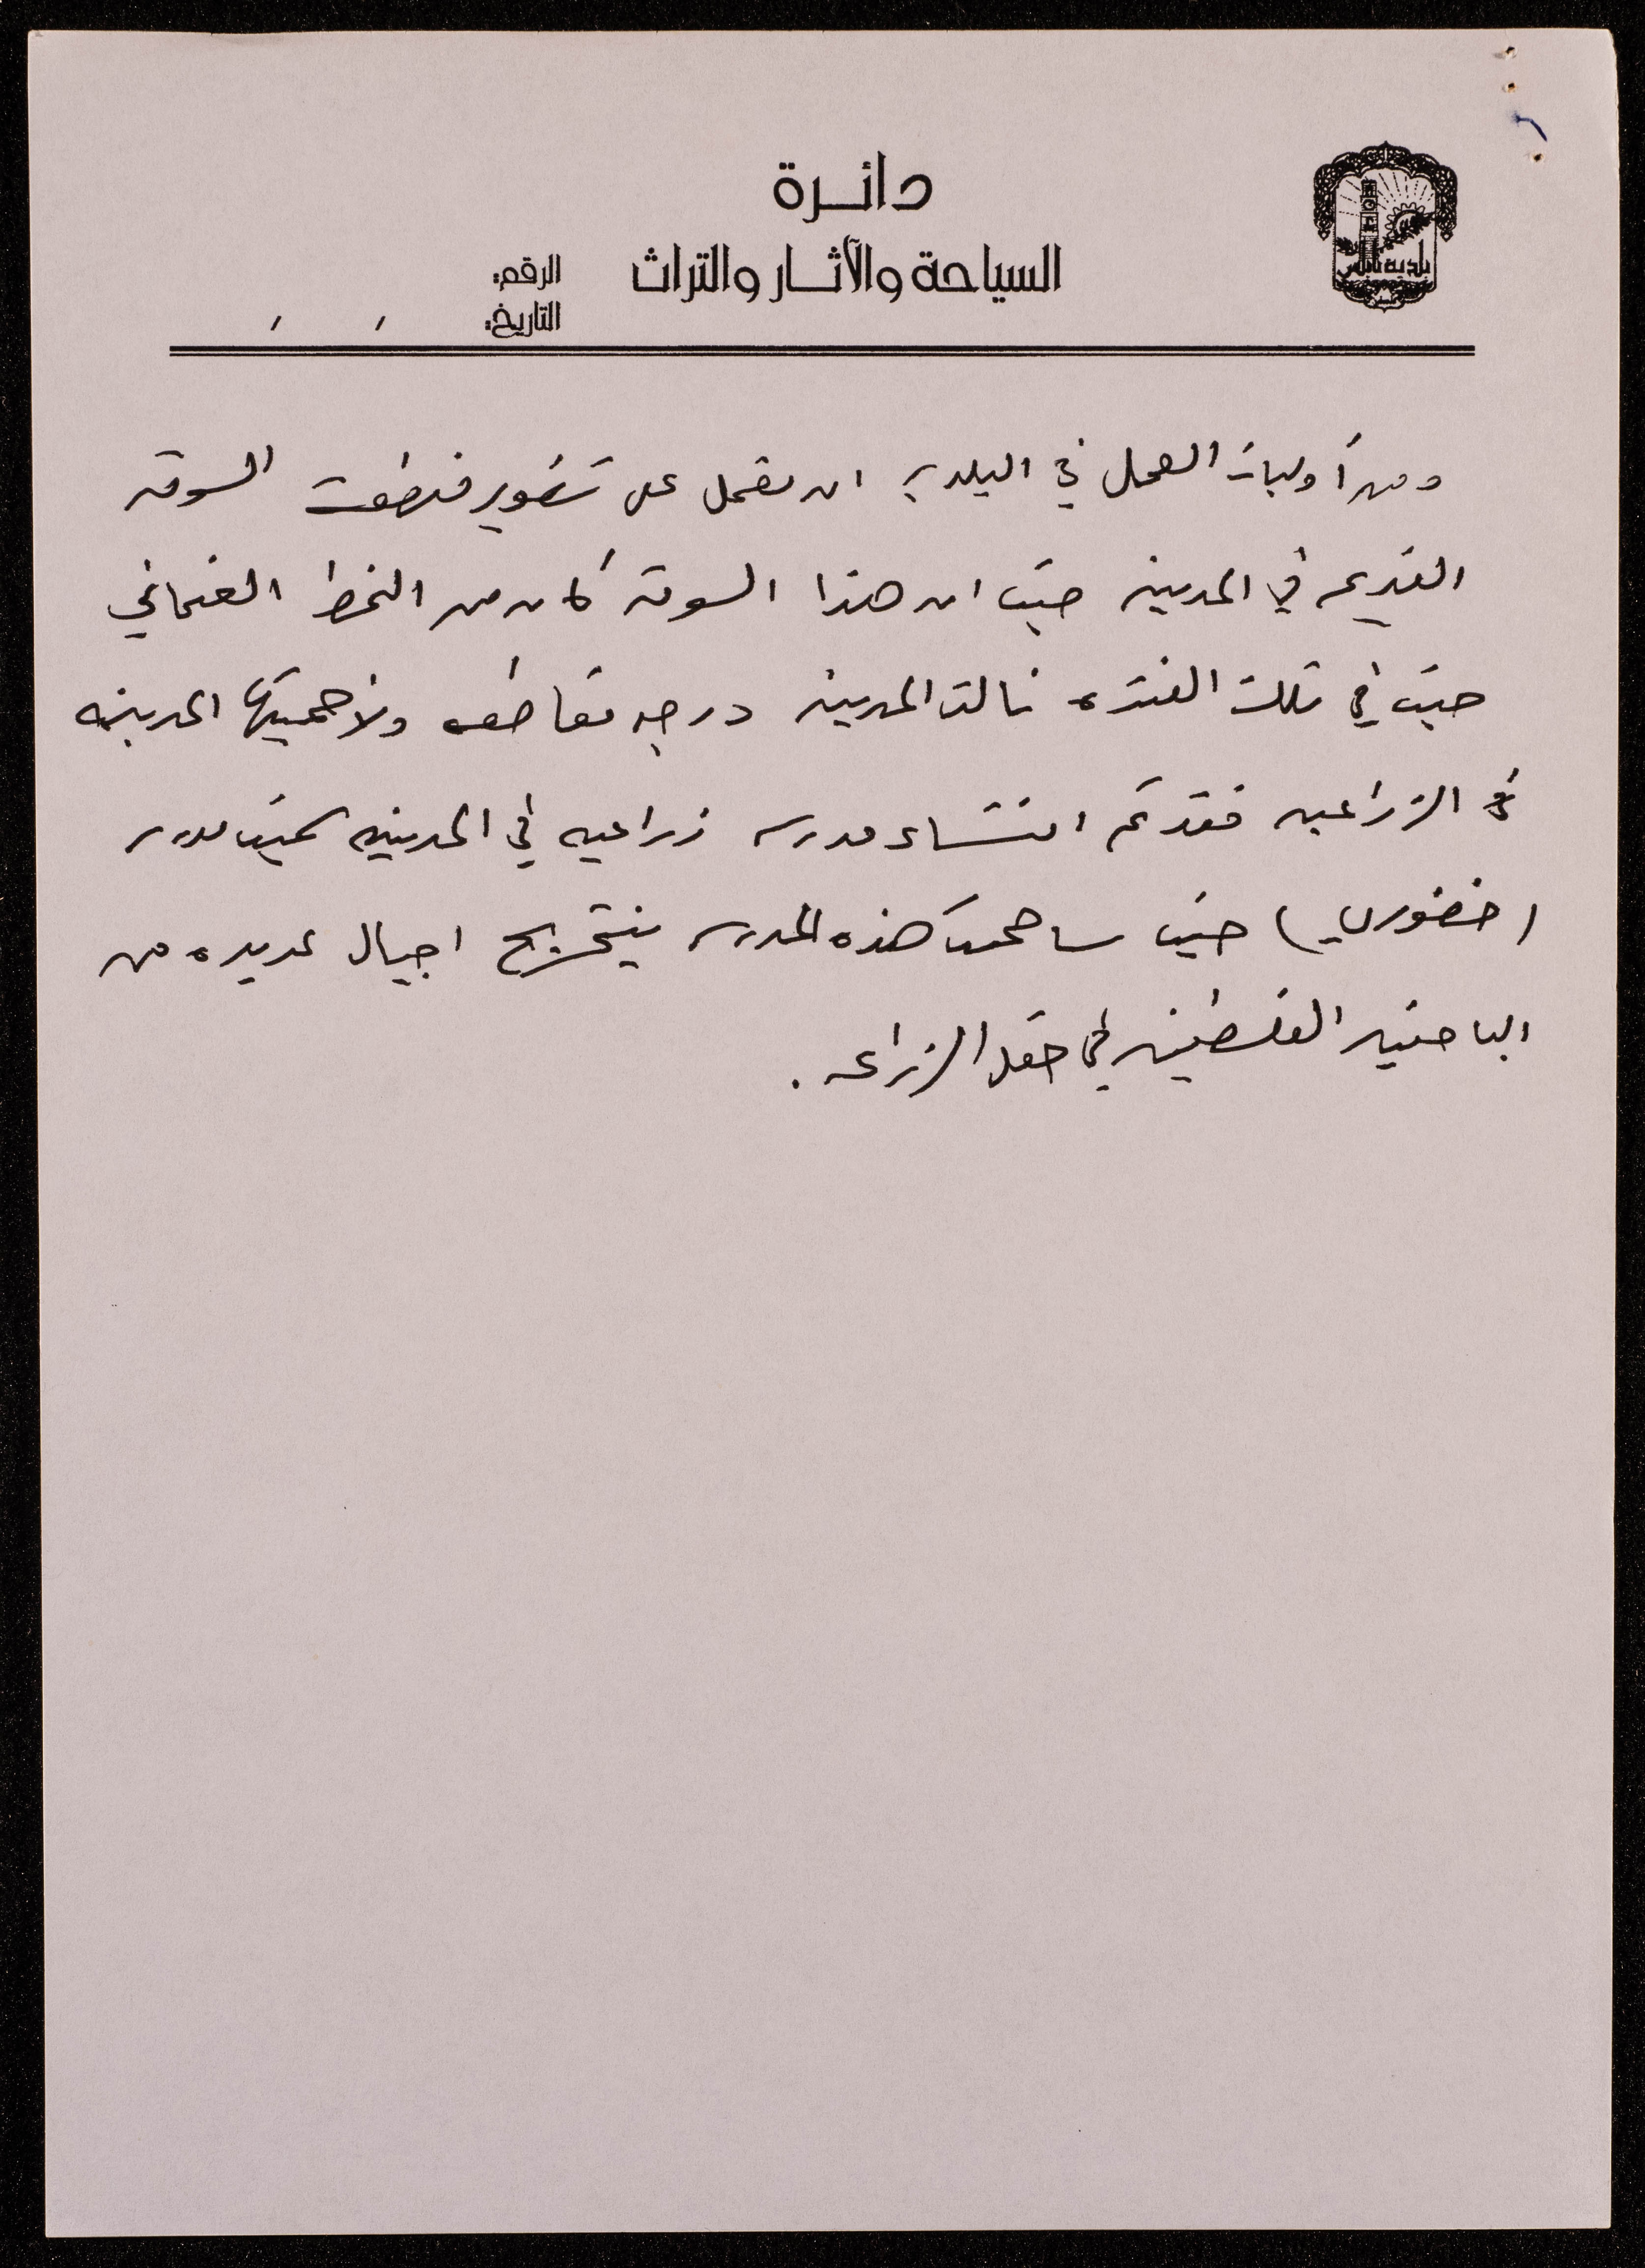 دائـرة
السياحة والآثـار والتراث
الرقم:
التاريخ: / /
بلدية نابلس
ومن أوليات العمل في البلديه ان نعمل على تطوير منطقت السوق
القديم في المدينه حيث ان هذا السوق كان من النمط العثماني
حيث في تلك الفتره نالت المدينه درجه مقاطعه ولأهميتها المدينه
في الزراعيه فقد تم انشاء مدرسه زراعيه في المدينه سميت مدرسه
(خضوري) حيث ساهمت هذه المدرسه بتخريج اجيال عديده من
الباحثين الفلسطينين في حقل الزراعه .